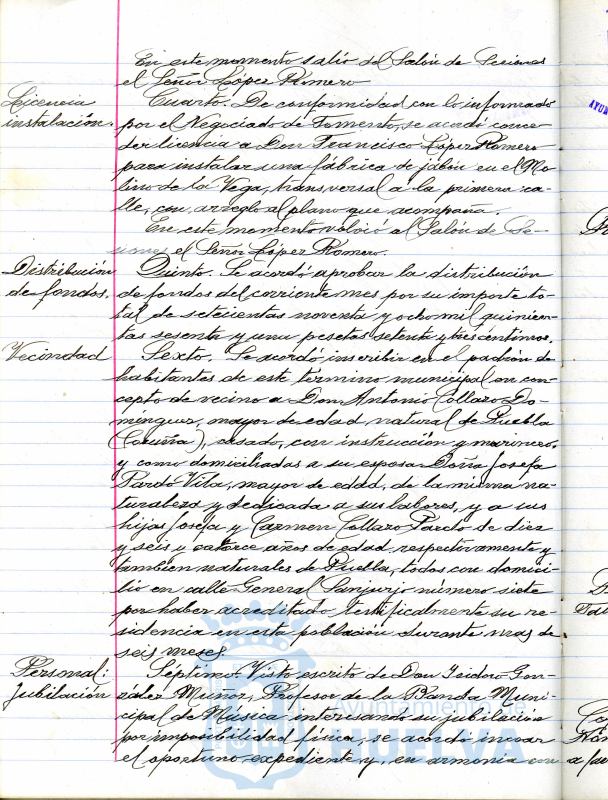 En este momento salió del Salón de Sesiones
el Señor López Romero
Licencia
instalación.
Cuarto. De conformidad con lo informado
por el Negociado de Fomento, se acordó conce-
der licencia a Don Francisco López Romero
para instalar una fábrica de jabón en el Mo-
lino de la Vega, transversal a la primera ca-
lle, con arreglo al plano que acompaña.
En este momento volvió al Salón de Se-
siones el Señor López Romero.
Distribución
de fondos.
Quinto. Se acordó aprobar la distribución
de fondos del corriente mes por su importe to-
tal de setecientas noventa y ocho mil quinien-
tas sesenta y una pesetas setenta y tres céntimos.
Vecindad
Sexto. Se acordó inscribir en el padrón de
habitantes de este término municipal en con-
cepto de vecino a Don Antonio Collazo Do-
mínguez, mayor de edad natural de Puebla
(Coruña), casado, con instrucción y marinero,
y como domiciliadas a su esposa Doña Josefa
Pardo Vila, mayor de edad, de la misma na-
turaleza y dedicada a sus labores, y a sus
hijas Josefa y Carmen Collazo Pardo de diez
y seis y catorce años de edad, respectivamente y
tambien naturales de Puebla, todos con domici-
lio en calle General Sanjurjo número siete
por haber acreditado testificalmente su re-
sidencia en esta población durante mas de
seis meses.
Personal:
Jubilación
Séptimo. Visto escrito de Don Isidoro Gon-
zález Muñoz, Profesor de la Banda Muni-
cipal de Música interesando su jubilación
por imposibilidad física, se acordó incoar
el oportuno expediente y, en armonía con
Ayuntamiento de
HUELVA